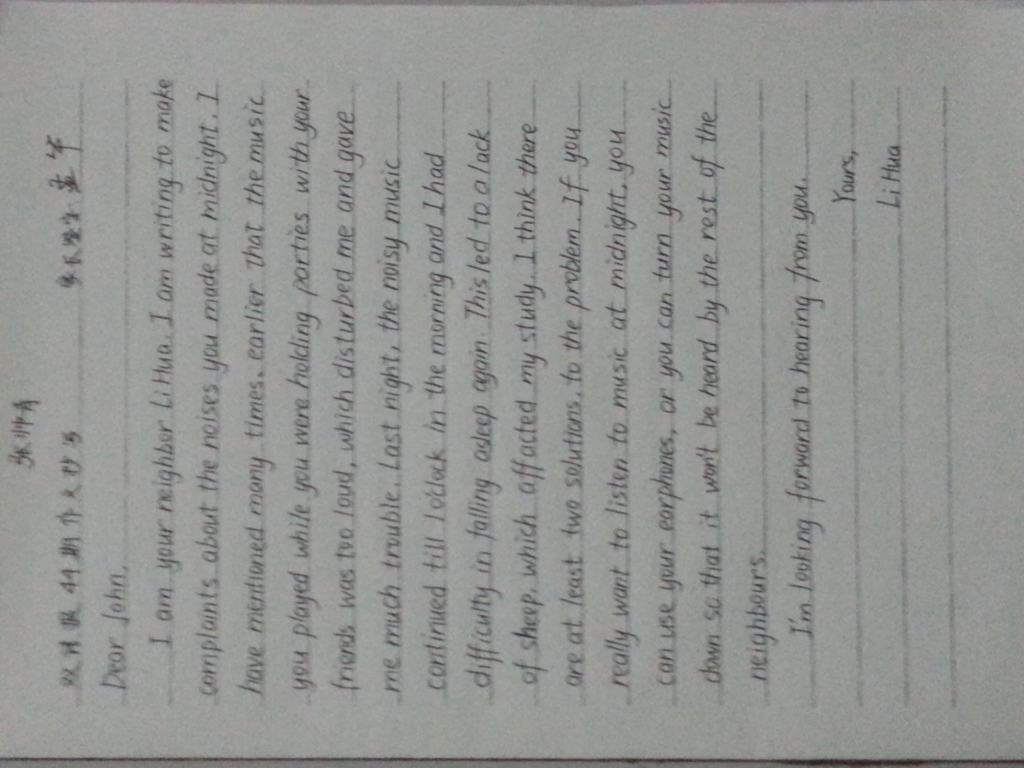 张帅
双语报 44 期作文抄写
Dear John,
I am your neighbor Li Hua. I am writing to make
complaints about the noises you made at midnight. I
have mentioned many times, earlier that the music
you played while you were holding parties with your
friends was too loud, which disturbed me and gave
me much trouble. Last night, the noisy music
continued till 1 o'clock in the morning and I had
difficulty in falling asleep again. This led to a lack
of sheep, which affacted my study. I think there
are at least two solutions. to the problem. If you
really want to listen to music at midnight, you
can use your earphones, or you can turn your music
down so that it won't be heard by the rest of the
neighbours.
I'm looking forward to hearing from you.
Yours,
Li Hua